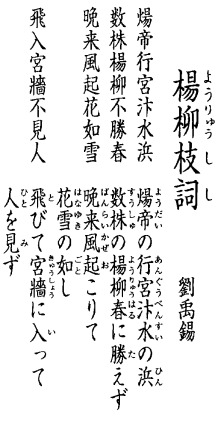 楊柳枝詞
ようりゅうしし
劉禹錫
煬帝行宮汴水浜
数株楊柳不勝春
晩来風起花如雪
飛入宮牆不見人
煬帝の行宮汴水の浜
ようだい あんぐうべんすい ひん
数株の楊柳春に勝えず
すうしゅ ようりゅうはる た
晩来風起こりて
ばんらいかぜお
花雪の如し
はなゆき ごと
飛びて宮牆に入って
と きゅうしょう い
人を見ず
ひと み